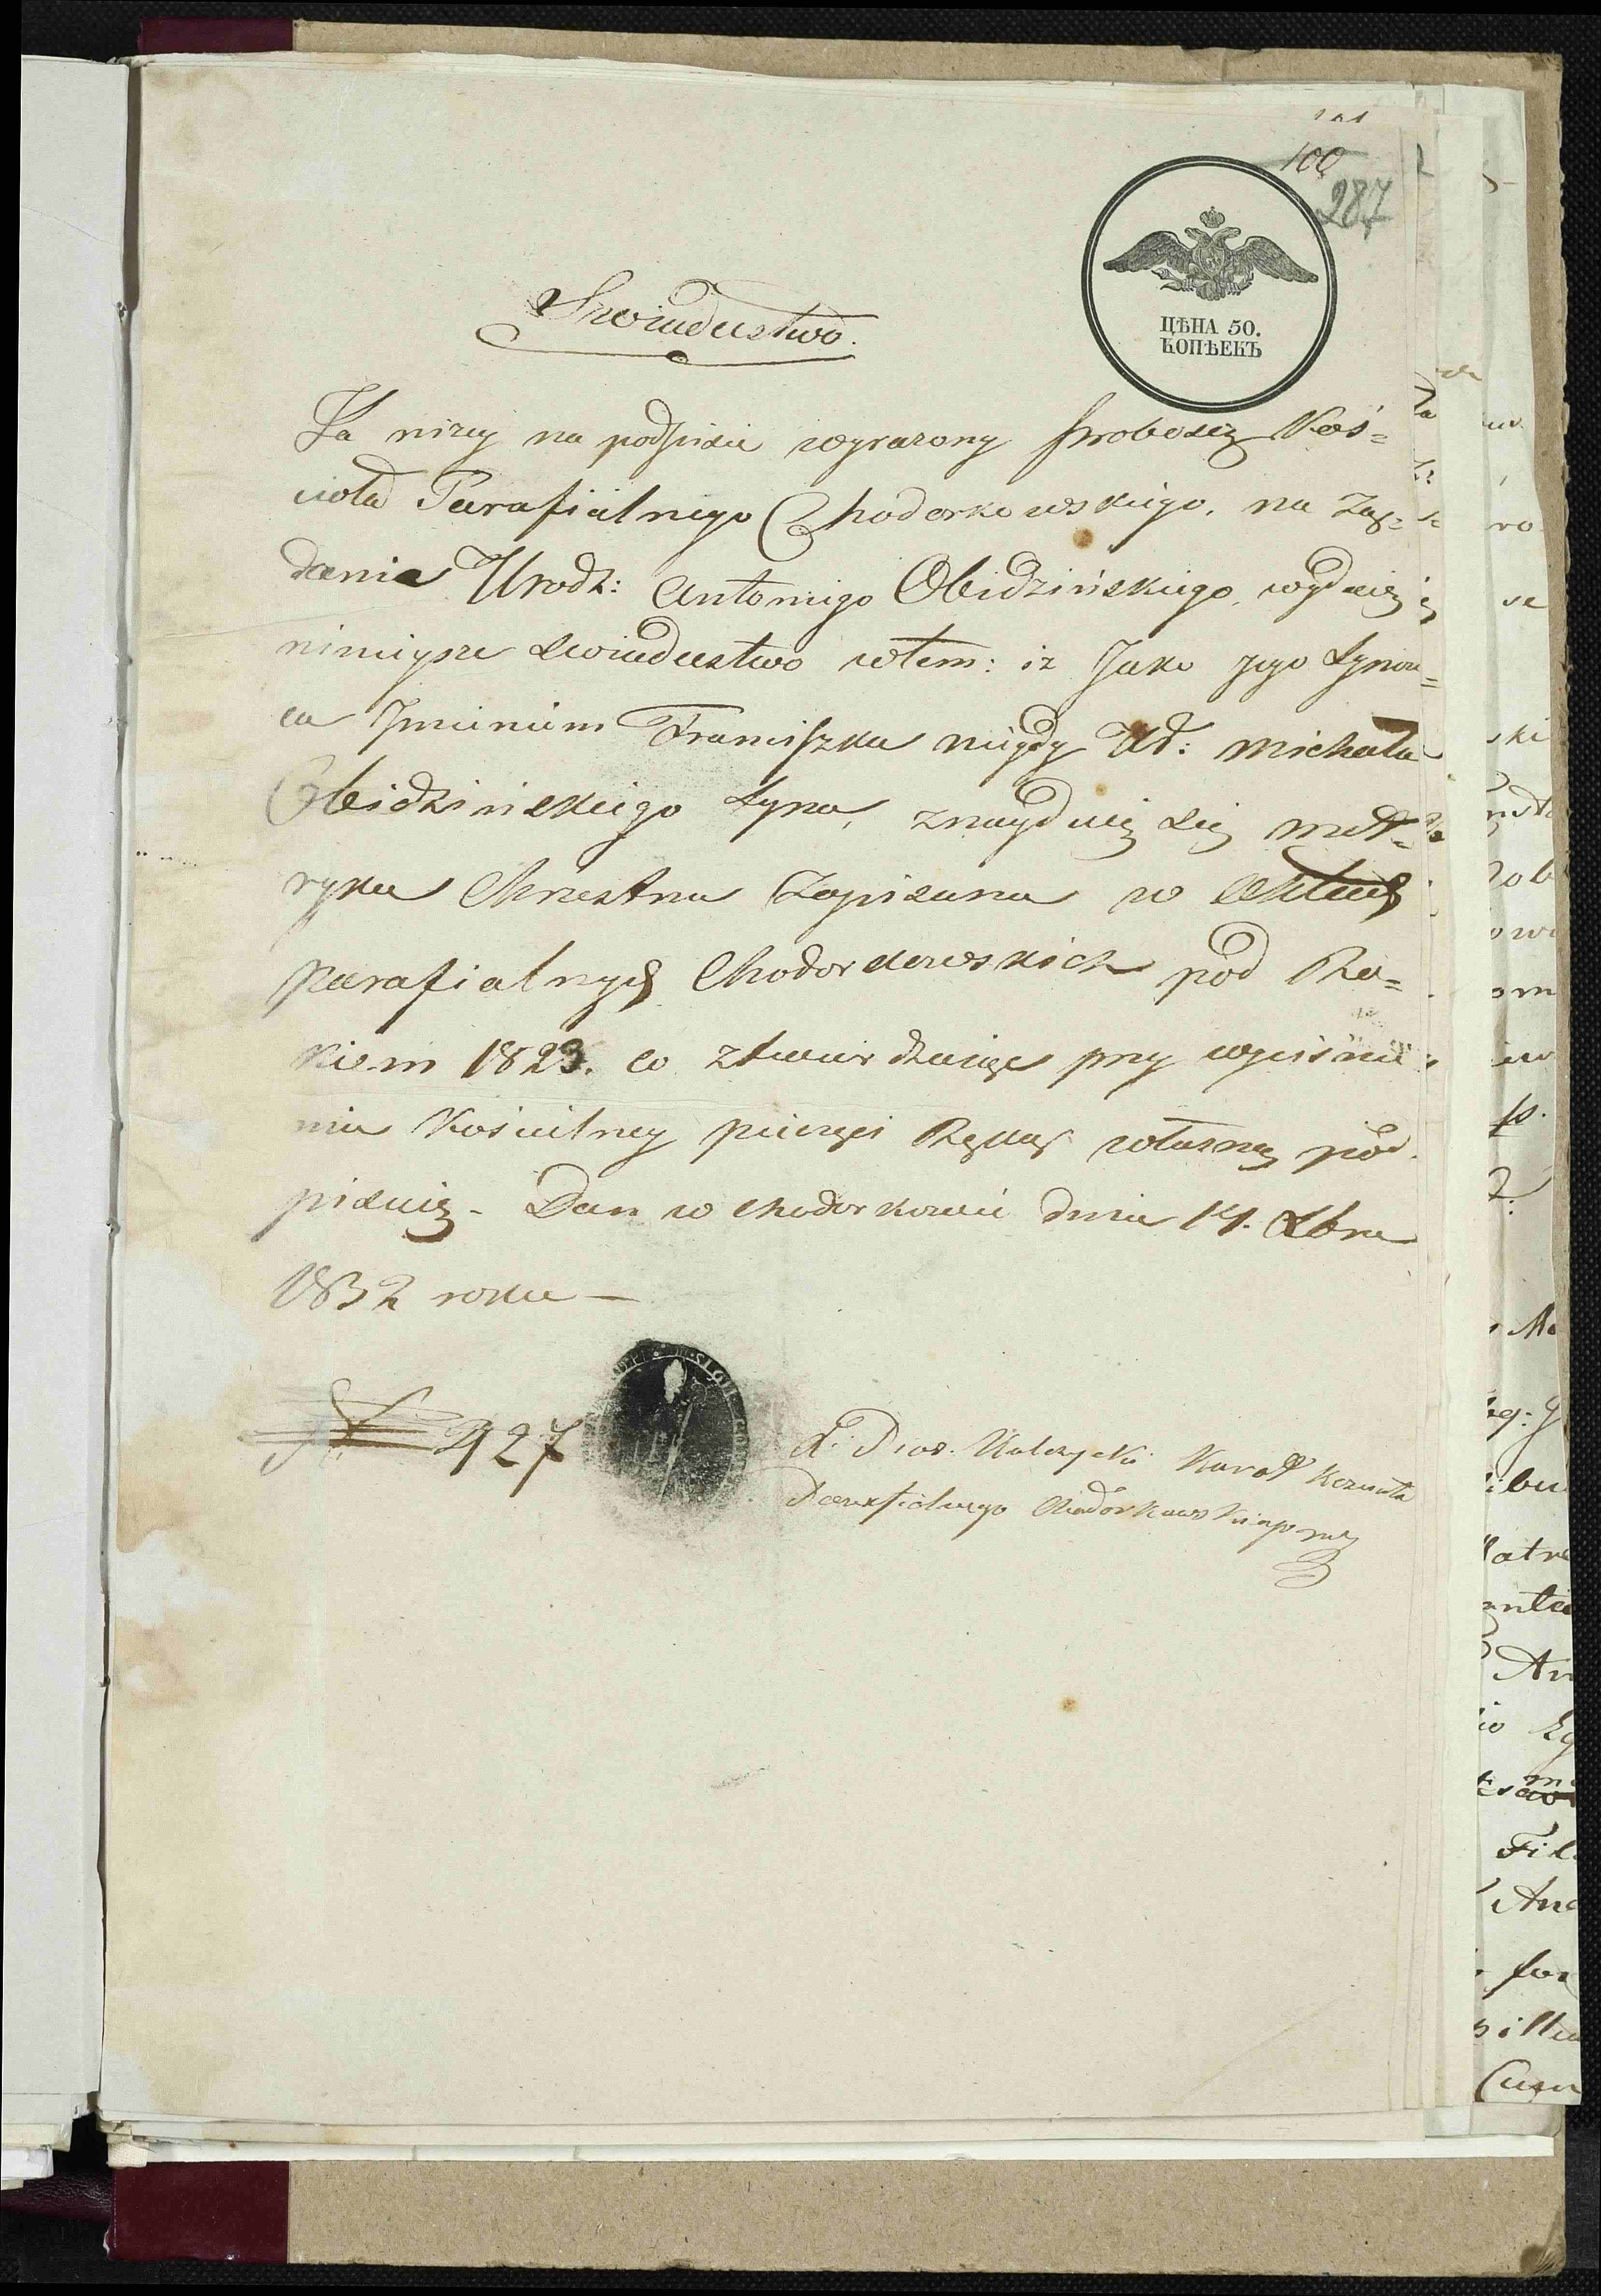 100
287
ЦѢНА 50.
КОПѢЕКЪ
Swiadectwo.
Ja niżey na podpisie wyrażony Proboszcz Koś=
cioła Parafialnego Chodorkowskiego, na żą=
danie Urodz: Antoniego Obidzińskiego, wydaię
ninieysze swiadectwo wtem: iż Jako jego Synow=
ca Jmieniem Franciszka niegdy Ur: Michała
Obidzińskiego Syna, znayduię się met=
ryka Chrzestna Zapisana w Aktach
parafialnych Chodorkowskich pod Ro=
kiem 1823. co ztwierdzaiąc przy wyciśnie
niu Kościelney pieczęci Ręką własną pod
pisuię - Dan w Chodorkowie dnia 14. Xbra
1832 roku —
427
X. Kulczycki Kurat Koscioła
Parafialnego Chodorkowskiego mp